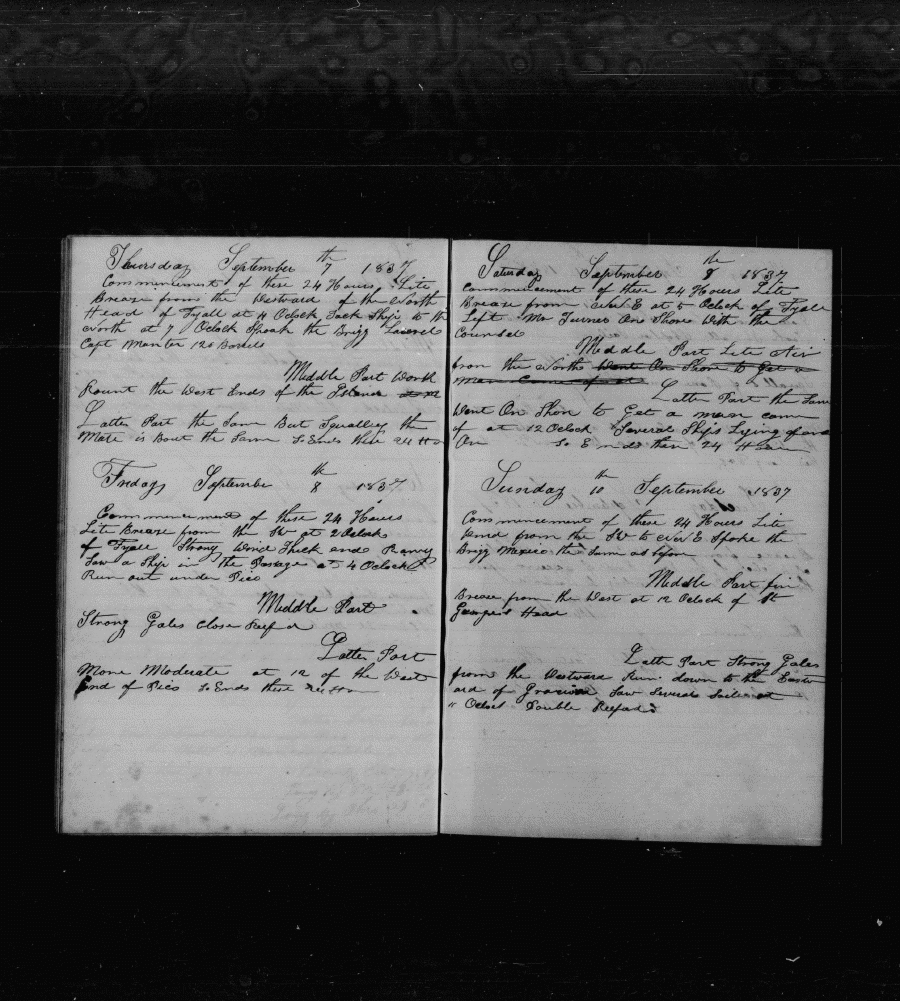 Thursday September 7th 1837
Commencement of these 24 Hours Lite
Breaze from the Westward of the North
Head of Fyall at 4 Oclock Tack Ship to the
North at 7 Oclock Spoak the Brigg
Capt 120 Barrels
Middle Part Work
Rount the West Ends of the Island
Latter Part the Same But Squalley the
Mate is Bout the Same So Ends these 24 Hou
Friday September 8th 1837
Commencement of these 24 Hours
Lite Breaze from the SW at 2 Oclock
of Fyall Strong Wind Thick and Raney
Saw a Ship in the Passage at 4 Oclock
Run out under Pico
Middle Part
Strong Gales Close Reef d
Latter Part
More Moderate at 12 of the West
End of Pico So Ends these 24 Hou
Saturday September 8th 1837
Commencement of these 24 Hours Lite
Breaze from NE at 5 Oclock of Fyall
Left Mr Turner One Shore With the
Counsel
Middle Part Lite Air
from the North Went On Shore to Get a
man Came of at
Latter Part the Same
Went On Shore to Get a man came
of at 12 Oclock Several Ships Lying of and
On So Ends these 24 Hours
Sunday 10th September 1837
Commencement of these 24 Hours Lite
Wind from the SW to NE Spoke the
Brigg Mexico the Same as before
Middle Part fin
Breaze from the West at 12 Oclock of St
Georges Head
Latter Part Strong Gales
from the Westward Run down to the Eastw
ard of Saw Several Sail at
11 Oclock Double Reefed